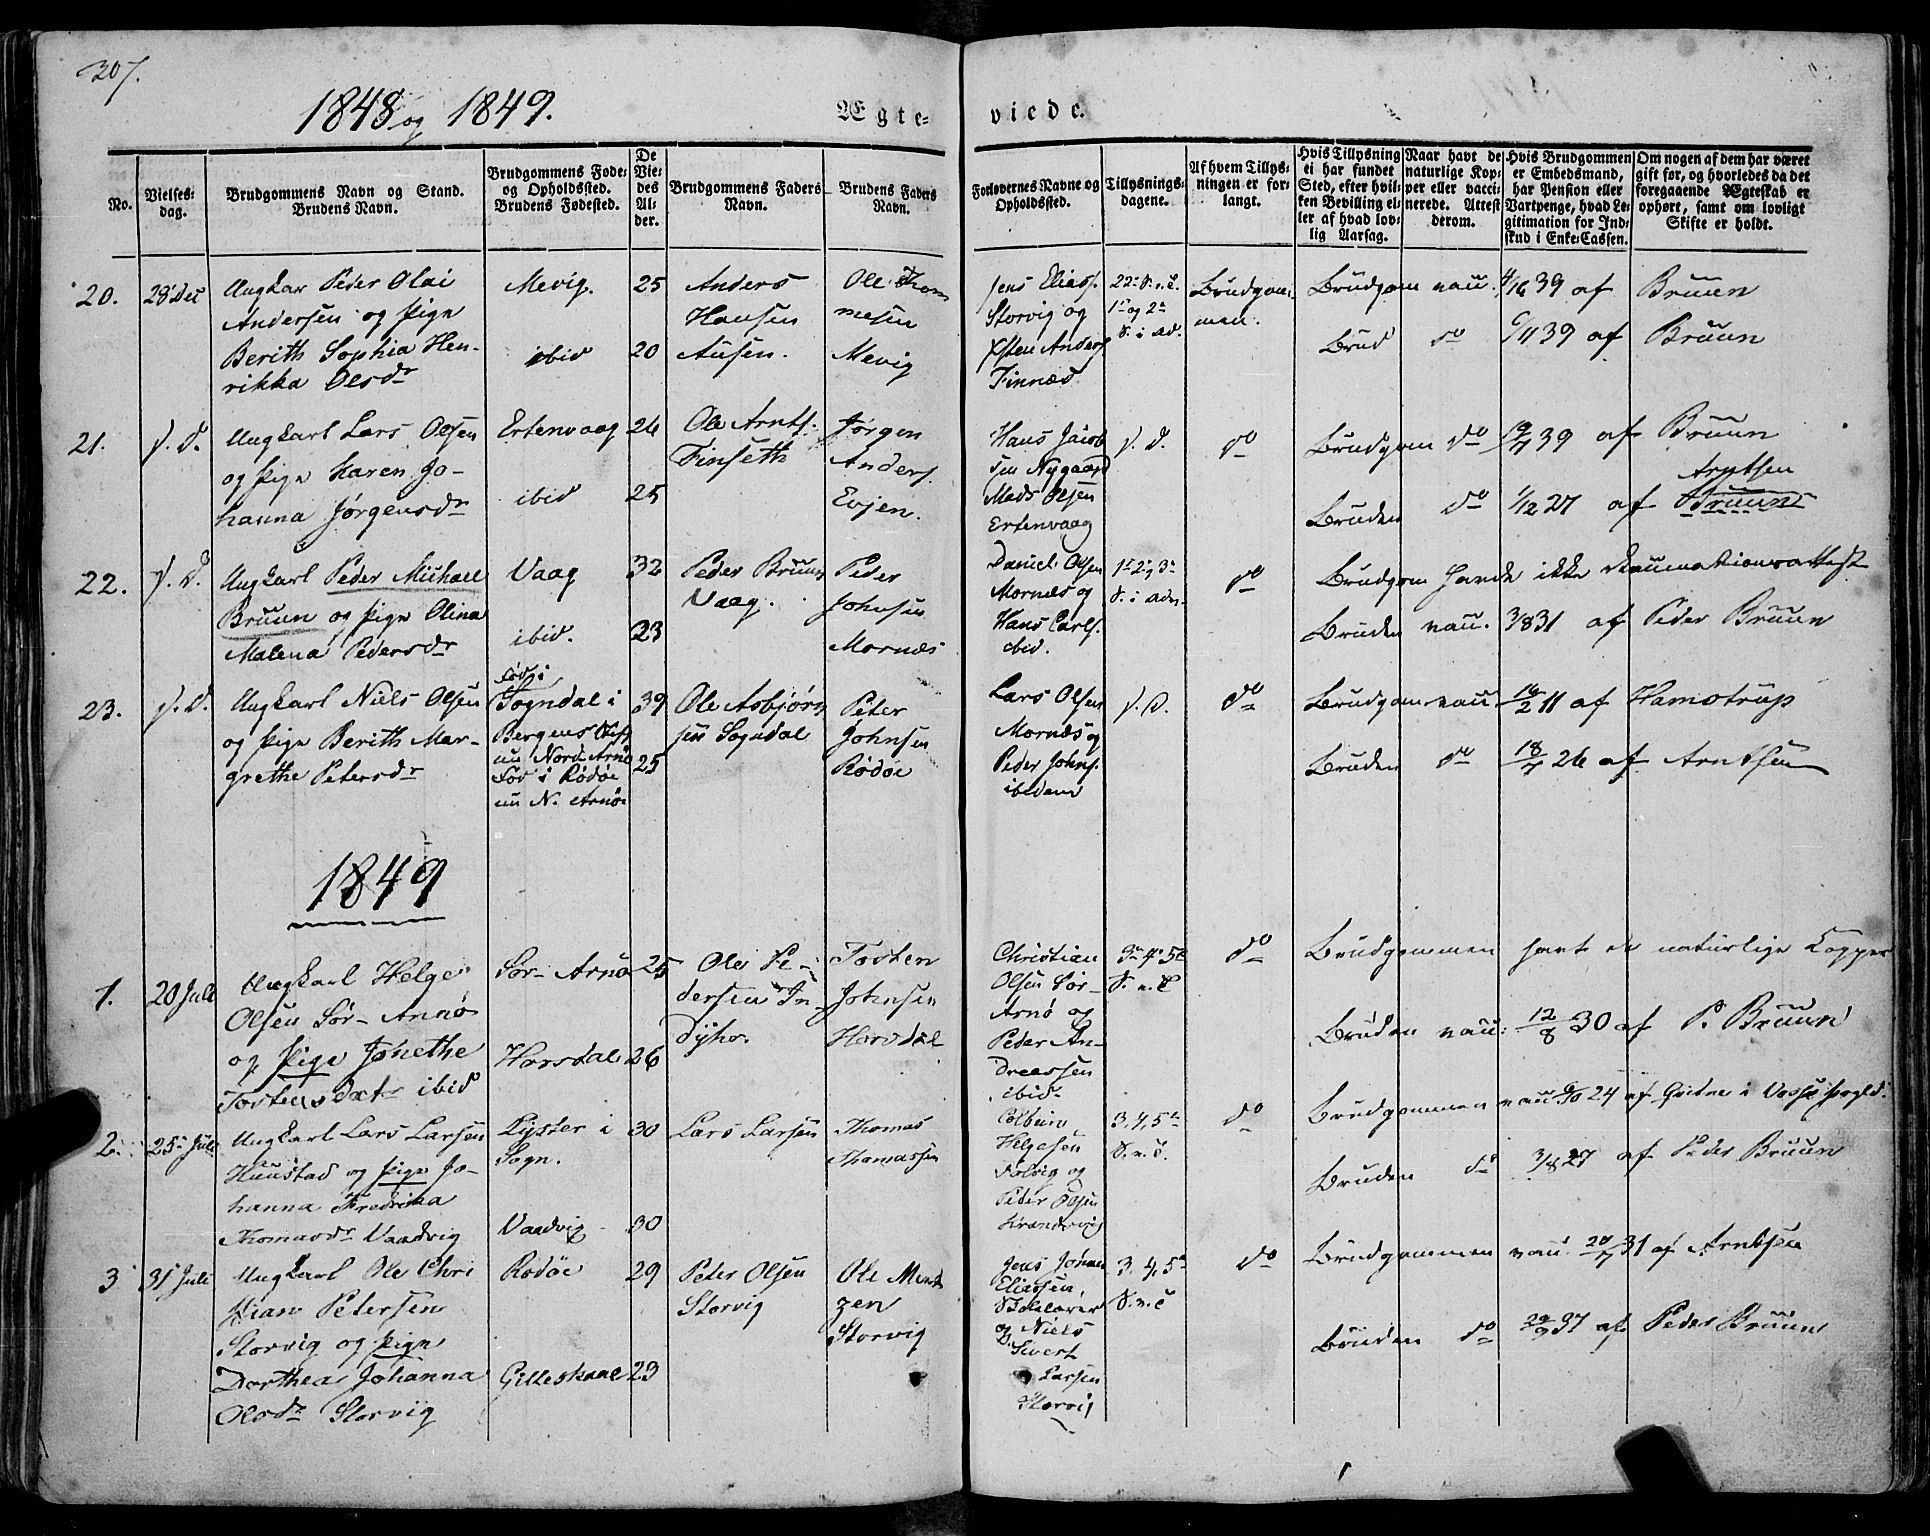 307.
1848 og 1849.
Ægte=
viede.
No.
Vielses=
dag.
Brudgommens Navn og Stand.
Brudens Navn.
Brudgommens Føde=
og Opholdssted.
Brudens Fødested.
De
Vie=
des
Al=
der.
Brudgommens Faders
Navn.
Brudens Faders
Navn.
Forlovernes Navne og
Opholdssted.
Tillysnings=
dagene.
Af hvem Tillys=
ningen er for=
langt.
Hvis Tillysning
ei har fundet
Sted, efter hvil=
ken Bevilling el=
ler af hvad lov=
lig Aarsag.
Naar havt de
naturlige Kop=
per eller vacci=
nerede. Attest
derom.
Hvis Brudgommen
er Embedsmand,
har Pension eller
Vartpenge, hvad Le=
gitimation for Ind=
skud i Enke=Cassen.
Om nogen af dem har været
gift før, og hvorledes da det
foregaaende Ægteskab er
ophørt, samt om lovligt
Skifte er holdt.
20.
28 Dec
Ungkar Peder Olai
Andersen og Pige
Berith Sophia Hen-
rikka Olsdr
Mevig.
ibid
25
20
Anders
Hansen
Ole Thom
mesen
Mevig
Jens Elias.
Storvig og
Anders
Finnæs
22 S. n. T.
1 og 2
S. i Ad.
Brudgom-
men.
Brudgom vau. 4/10 39 af Bruun
Brud do 6/11 39 af Bruun
21.
s. D.
Ungkarl Lars Olsen
og Pige Karen Jo-
hanna Jørgensdr
Ertenvaag
ibid
26
25
Ole Arnts.
Finseth
Jørgen
Anders.
Evjen.
Hans Jacob
sen Nygaard
Mads Olsen
Ertenvaag
s. D.
do
Brudgom do 39 af Bruun
Arntsen
Bruden do 1/2 27 af Bruun
22.
s. D.
Ungkarl Peder Michael
Bruun og Pige Olina
Malena Pedersdr
Vaag
ibid.
32
23
Peder Bruun
Vaag.
Peder
Johnsen
Mornæs
Daniel Olsen
Mornæs og
Hans Carls.
ibid.
1 2 og 3
S. i Adv.
do
Brudgom havde ikke Vaccinationsattest
Bruden vau. 3/8 31 af Peder Bruun
23.
s. D.
Ungkarl Niels Olsen
og Pige Berith Mar-
grethe Petersdr
Fød i
Sogndal i
Bergens Stift
nu Nord Arnø
Fød i Rødøe
nu N. Arnøe
39
25
Ole Asbjørn
sen Sogndal
Peter
Johnsen
Rødøe
Lars Olsen
Mornæs og
Peder Johns.
ibidem
s. D.
do
Brudgom vau. 16/2 11 af Hamstrup
Bruden do 18/7 26 af Arntsen
1849
1.
20 Juli
Ungkarl Helge
Olsen Sør-Arnø
og Pige Jonethe
Tostensdatr ibid
Sør-Arnø
Horsdal
25
26
Ole Pe-
dersen In-
dyhr
Tosten
Johnsen
Horsdal
Christian
Olsen Sør-
Arnø og
Peder An-
dreassen
ibid
3 4 5
S. n. T
do
Brudgommen havt de naturlige Kopper
Bruden vau: 12/8 30 af P. Bruun
2.
25 Juli
Ungkarl Lars Larsen
Huustad og Pige Jo-
hanna Fredrikka
Thomasdr Vaadvig
Lyster i
Sogn.
Vaadvig
30
30
Lars Larsen
Thomas
Thomassen
Colbin
Helgesen
Solvig og
Peder Olsen
3. 4, 5
S. n. T.
do
Brudgommen vau 24 af
Bruden do 3/8 27 af Peder Bruun
3
31 Juli
Ungkarl Ole Chri
stian Petersen
Storvig og Pige
Dorthea Johanna
Olsdr Storvig
Rødøe
Gilleskaal
29
23
Peter Olsen
Storvig
Ole Ment
zen
Storvig
Jens Johan
Eliassen,
Skolelærer
og Niels
Sivert
Larsen
Storvig
3. 4, 5
S. n. T
do
Brudgommen vau. 20/7 31 af Arntsen
Bruden do 22/9 37 af Peder Bruun